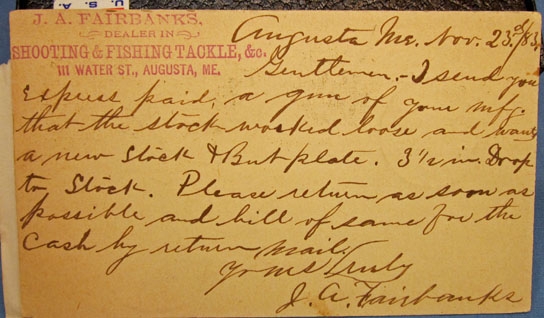 U.
S. A.
J. A. FAIRBANKS,
DEALER IN
SHOOTING & FISHING TACKLE, &c.
111 WATER ST., AUGUSTA, ME.
Augusta Me. Nov. 23d/83.
Gentlemen,- I send you
Express paid, a gun of your mfg.
that the stock worked loose and wants
a new Stock & Butplate. 3 1/2 in. Drop
to Stock. Please return as soon as
possible and bill of same for the
Cash by return mail.
Yours truly
J. A. Fairbanks